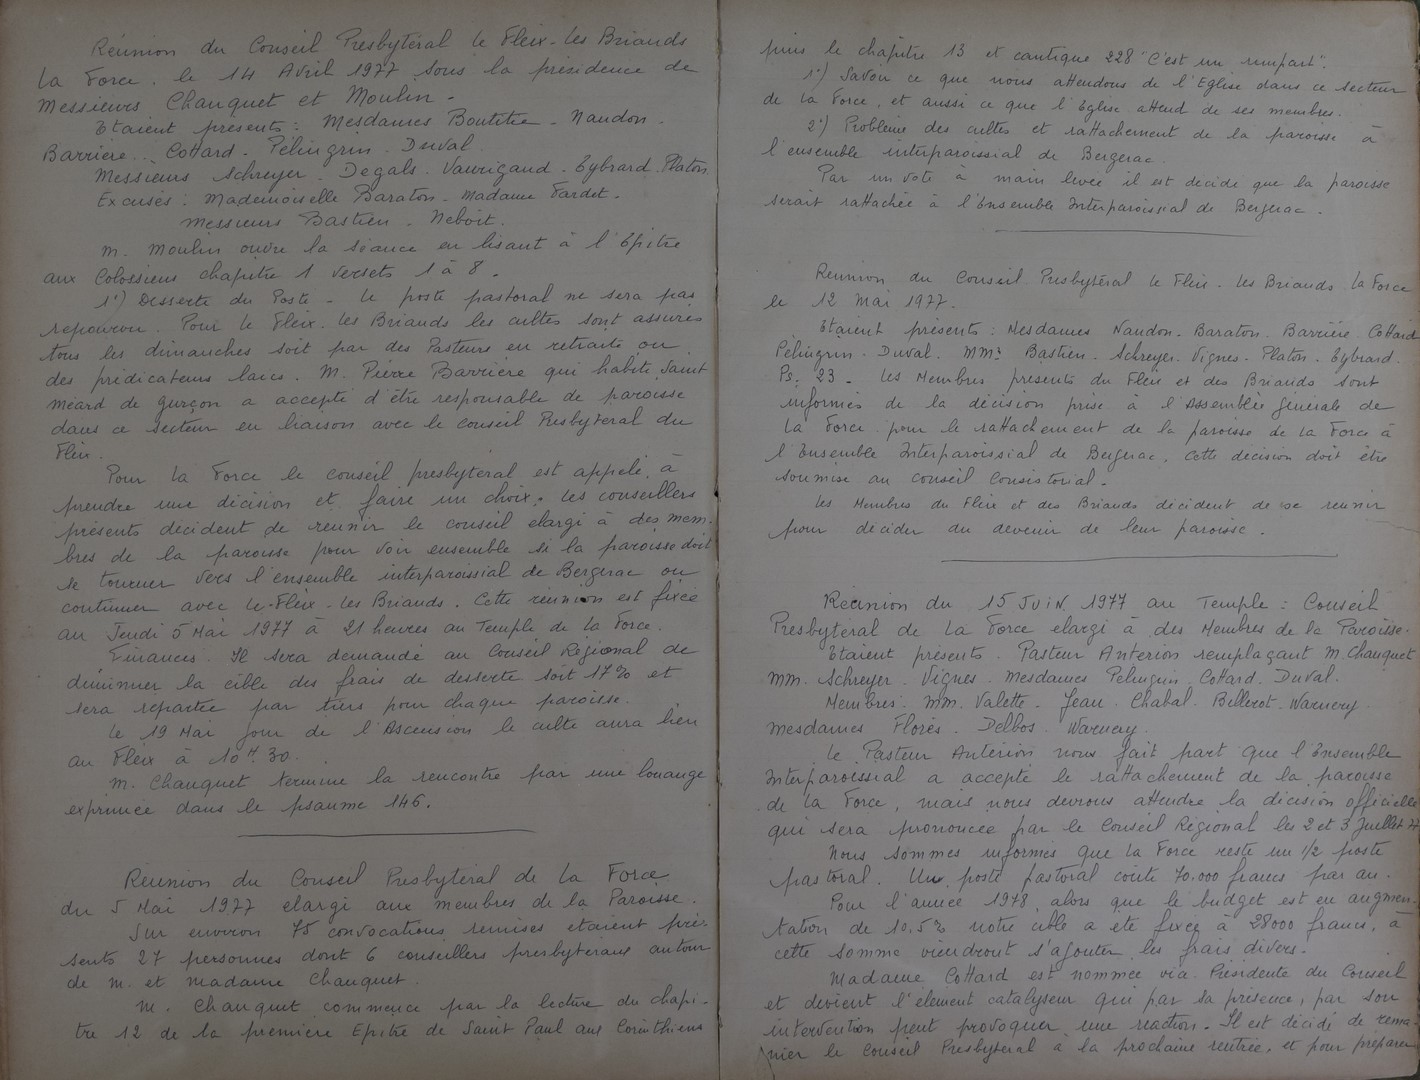 Réunion du Conseil Presbytéral le Fleix - les Briands
La Force. le 14 Avril 1977 sous la présidence de
Messieurs Chauquet et Moulin -
Etaient présents : Mesdames Boutitie - Naudon -
Barrière - Cottard - Pélingrin - Duval
Messieurs Schreyer - Degals - Vaurigaud - Eybrard. Platon
Excusés : Mademoiselle Baraton - Madame Fardet -
Messieurs Bastien - Neboit.
M. Moulin ouvre la séance en lisant à l'Epitre
aux Colossiens chapitre 1 versets 1 à 8.
1°) Desserte du Poste - le poste pastoral ne sera pas
repourvu. Pour le Fleix - les Briands les cultes sont assurés
tous les dimanches soit par des Pasteurs en retraite ou
des prédicateurs laïcs. M. Pierre Barrière qui habite Saint
Méard de Gurçon a accepté d'être responsable de paroisse
dans ce secteur en liaison avec le conseil Presbyteral du
Fleix.
Pour la Force le conseil presbyteral est appelé à
prendre une décision et faire un choix. les conseillers
présents décident de reunir le conseil elargi à des mem-
bres de la paroisse pour voir ensemble si la paroisse doit
se tourner vers l'ensemble interparoissial de Bergerac ou
continuer avec le Fleix - les Briands. Cette réunion est fixée
au Jeudi 5 Mai 1977 à 21 heures au Temple de la Force.
Finances. Il sera demandé au Conseil Régional de
diminuer la cible des frais de desserte soit 17% et
sera repartie par tiers pour chaque paroisse.
le 19 Mai jour de l'Ascension le culte aura lieu
au Fleix à 10H.30.
M. Chauquet termine la rencontre par une louange
exprimée dans le psaume 146.
Réunion du Conseil Presbytéral de La Force
du 5 Mai 1977 elargi aux membres de la Paroisse.
Sur environ 75 convocations remises etaient pré-
sents 27 personnes dont 6 conseillers presbyteraux autour
de M. et Madame Chauquet.
M. Chauquet commence par la lecture du chapi-
tre 12 de la première Epitre de Saint Paul aux Corinthiens
puis le chapitre 13 et cantique 228 "C'est un rempart".
1°) Savoir ce que nous attendons de l'Eglise dans ce secteur
de la Force, et aussi ce que l'Eglise attend de ses membres.
2°) Problème des cultes et rattachement de la paroisse à
l'ensemble interparoissial de Bergerac.
Par un vote à main levée il est decidé que la paroisse
serait rattachée à l'Ensemble Interparoissial de Bergerac.
Réunion du Conseil Presbytéral le Fleix - les Briands. la Force
le 12 Mai 1977.
Etaient présents : Mesdames Naudon - Baraton - Barrière Cottard
Pélingrin - Duval. MMrs Bastien - Schreyer - Vignes - Platon - Eybrard.
Ps. 23 - les Membres présents du Fleix et des Briands sont
informés de la décision prise à l'Assemblée générale de
la Force pour le rattachement de la paroisse de la Force à
l'Ensemble Interparoissial de Bergerac. Cette decision doit être
soumise au conseil Consistorial.
les Membres du Fleix et des Briands décident de se reunir
pour décider du devenir de leur paroisse.
Reunion du 15 Juin 1977 au Temple : Conseil
Presbytéral de la Force elargi à des Membres de la Paroisse.
Etaient présents. Pasteur Anterion remplaçant M. Chauquet.
MM. Schreyer - Vignes - Mesdames Pelingrin. Cottard. Duval.
Membres : MM. Valette - Jean - Chabal - Billerot - Warnery.
Mesdames Florès - Delbos - Warnery
le Pasteur Antérion nous fait part que l'Ensemble
Interparoissial a accepté le rattachement de la paroisse
de la Force, mais nous devrons attendre la décision officielle
qui sera prononcée par le Conseil Régional les 2 et 3 Juillet 77
Nous sommes informés que la Force reste un 1/2 poste
pastoral. Un poste pastoral coûte 70.000 francs par an.
Pour l'année 1978, alors que le budget est en augmen-
tation de 10,5% notre cible a été fixée à 28000 francs, à
cette somme viendront s'ajouter les frais divers.
Madame Cottard est nommée vice Présidente du Conseil
et devient l'élément catalyseur qui par sa présence, par son
intervention peut provoquer une reaction. Il est décidé de rema-
nier le Conseil Presbytéral à la prochaine rentrée. et pour préparer